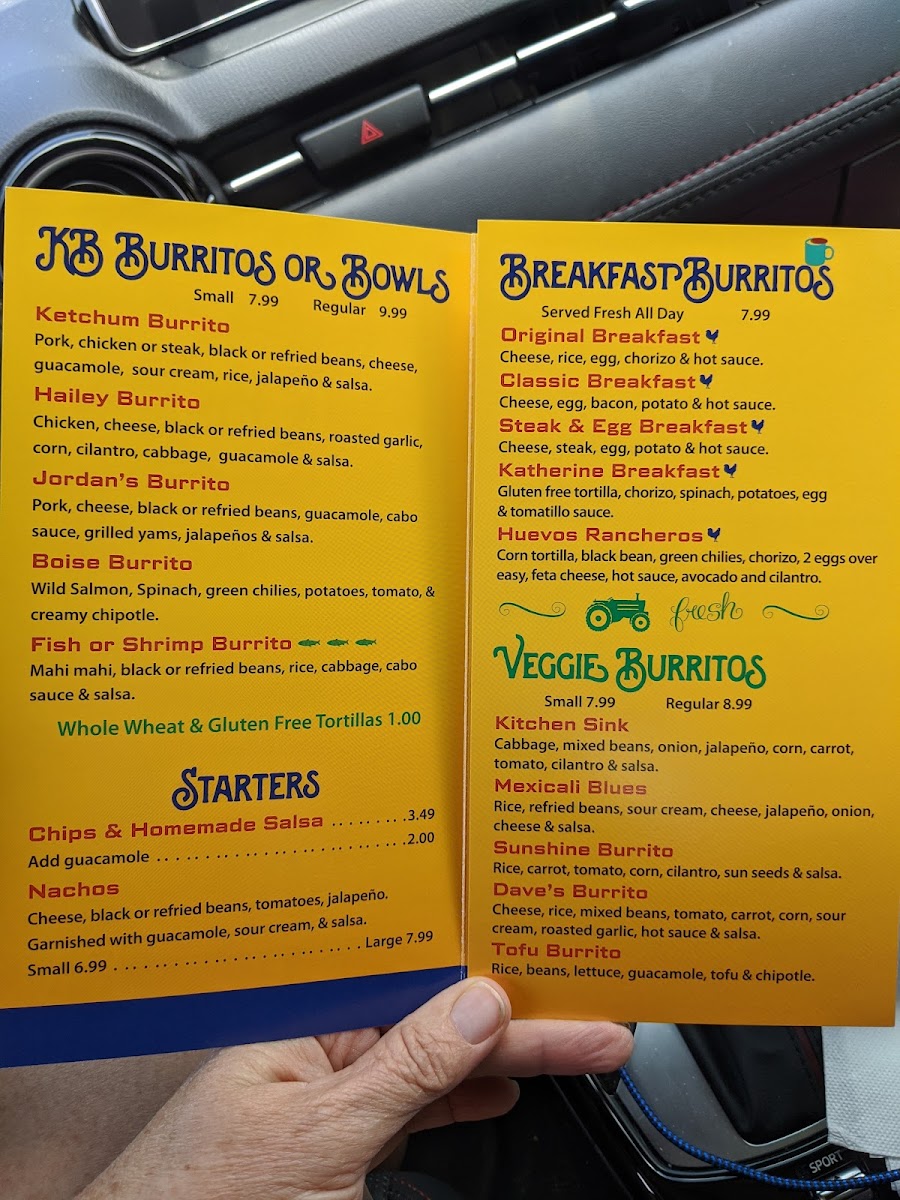 KB Burritos or Bowls
Small 7.99 Regular 9.99
Ketchum Burrito
Pork, chicken or steak, black or refried beans, cheese,
guacamole, sour cream, rice, jalapeño & salsa.
Hailey Burrito
Chicken, cheese, black or refried beans, roasted garlic,
corn, cilantro, cabbage, guacamole & salsa.
Jordan's Burrito
Pork, cheese, black or refried beans, guacamole, cabo
sauce, grilled yams, jalapeños & salsa.
Boise Burrito
Wild Salmon, Spinach, green chilies, potatoes, tomato, &
creamy chipotle.
Fish or Shrimp Burrito
Mahi mahi, black or refried beans, rice, cabbage, cabo
sauce & salsa.
Whole Wheat & Gluten Free Tortillas 1.00
Starters
Chips & Homemade Salsa ........3.49
Add guacamole ...........................2.00
Nachos
Cheese, black or refried beans, tomatoes, jalapeño.
Garnished with guacamole, sour cream, & salsa.
Small 6.99 ........................... Large 7.99
Breakfast Burritos
Served Fresh All Day 7.99
Original Breakfast
Cheese, rice, egg, chorizo & hot sauce.
Classic Breakfast
Cheese, egg, bacon, potato & hot sauce.
Steak & Egg Breakfast
Cheese, steak, egg, potato & hot sauce.
Katherine Breakfast
Gluten free tortilla, chorizo, spinach, potatoes, egg
& tomatillo sauce.
Huevos Rancheros
Corn tortilla, black bean, green chilies, chorizo, 2 eggs over
easy, feta cheese, hot sauce, avocado and cilantro.
fresh
Veggie Burritos
Small 7.99 Regular 8.99
Kitchen Sink
Cabbage, mixed beans, onion, jalapeño, corn, carrot,
tomato, cilantro & salsa.
Mexicali Blues
Rice, refried beans, sour cream, cheese, jalapeño, onion,
cheese & salsa.
Sunshine Burrito
Rice, carrot, tomato, corn, cilantro, sun seeds & salsa.
Dave's Burrito
Cheese, rice, mixed beans, tomato, carrot, corn, sour
cream, roasted garlic, hot sauce & salsa.
Tofu Burrito
Rice, beans, lettuce, guacamole, tofu & chipotle.
SPORT